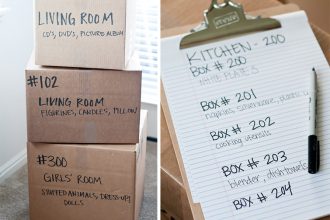 LIVING ROOM
CD'S, DVD'S, PICTURE ALBUM
#102
LIVING ROOM
FIGURINES, CANDLES, PILLOW
#300
GIRLS' ROOM
STUFFED ANIMALS, DRESS UP/
DOLLS
KITCHEN - 200
BOX # 200
WHITE PLATES
BOX # 201
napkins, silverware, plastic
BOX # 202
cooking utensils
BOX # 203
blender, dish towels
BOX # 204